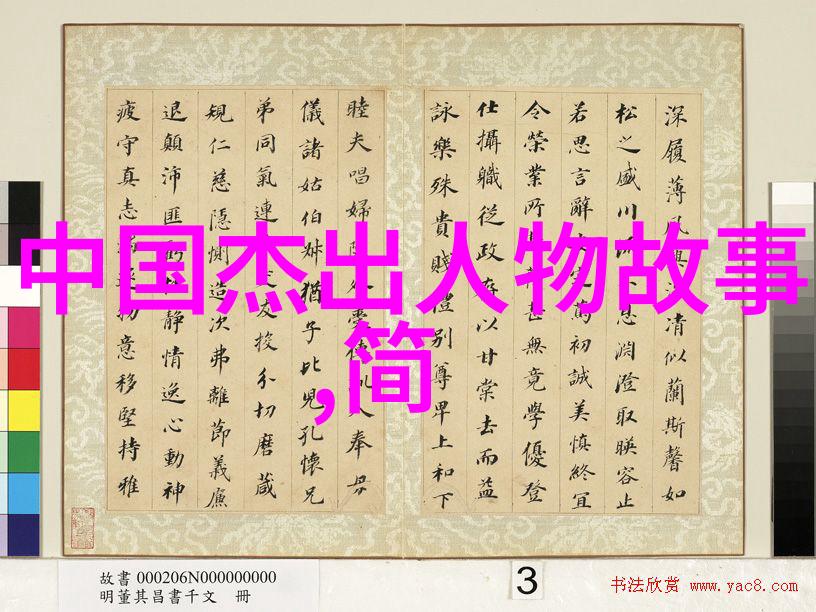 深履薄夙興清似蘭斯馨如
松之盛川息淵澄取暎容止
若思言辭篤初誠美慎終宜
令榮業所甚無竟學優登
仕攝職從政存以甘棠去而益
詠樂殊貴賤禮別尊卑上和下
睦夫唱婦外受入奉母
儀諸姑伯叔猶子比兒孔懷兄
弟同氣連交友投分切磨葴
規仁慈隱惻造次弗離節義廉
退顛沛匪虧靜情逸心動神
疲守真志逐物意移堅持雅
中国杰出人物故事
,简
故書 000206N000000000
明董其昌書千文 冊
3
书法欣赏 www.yac8.com